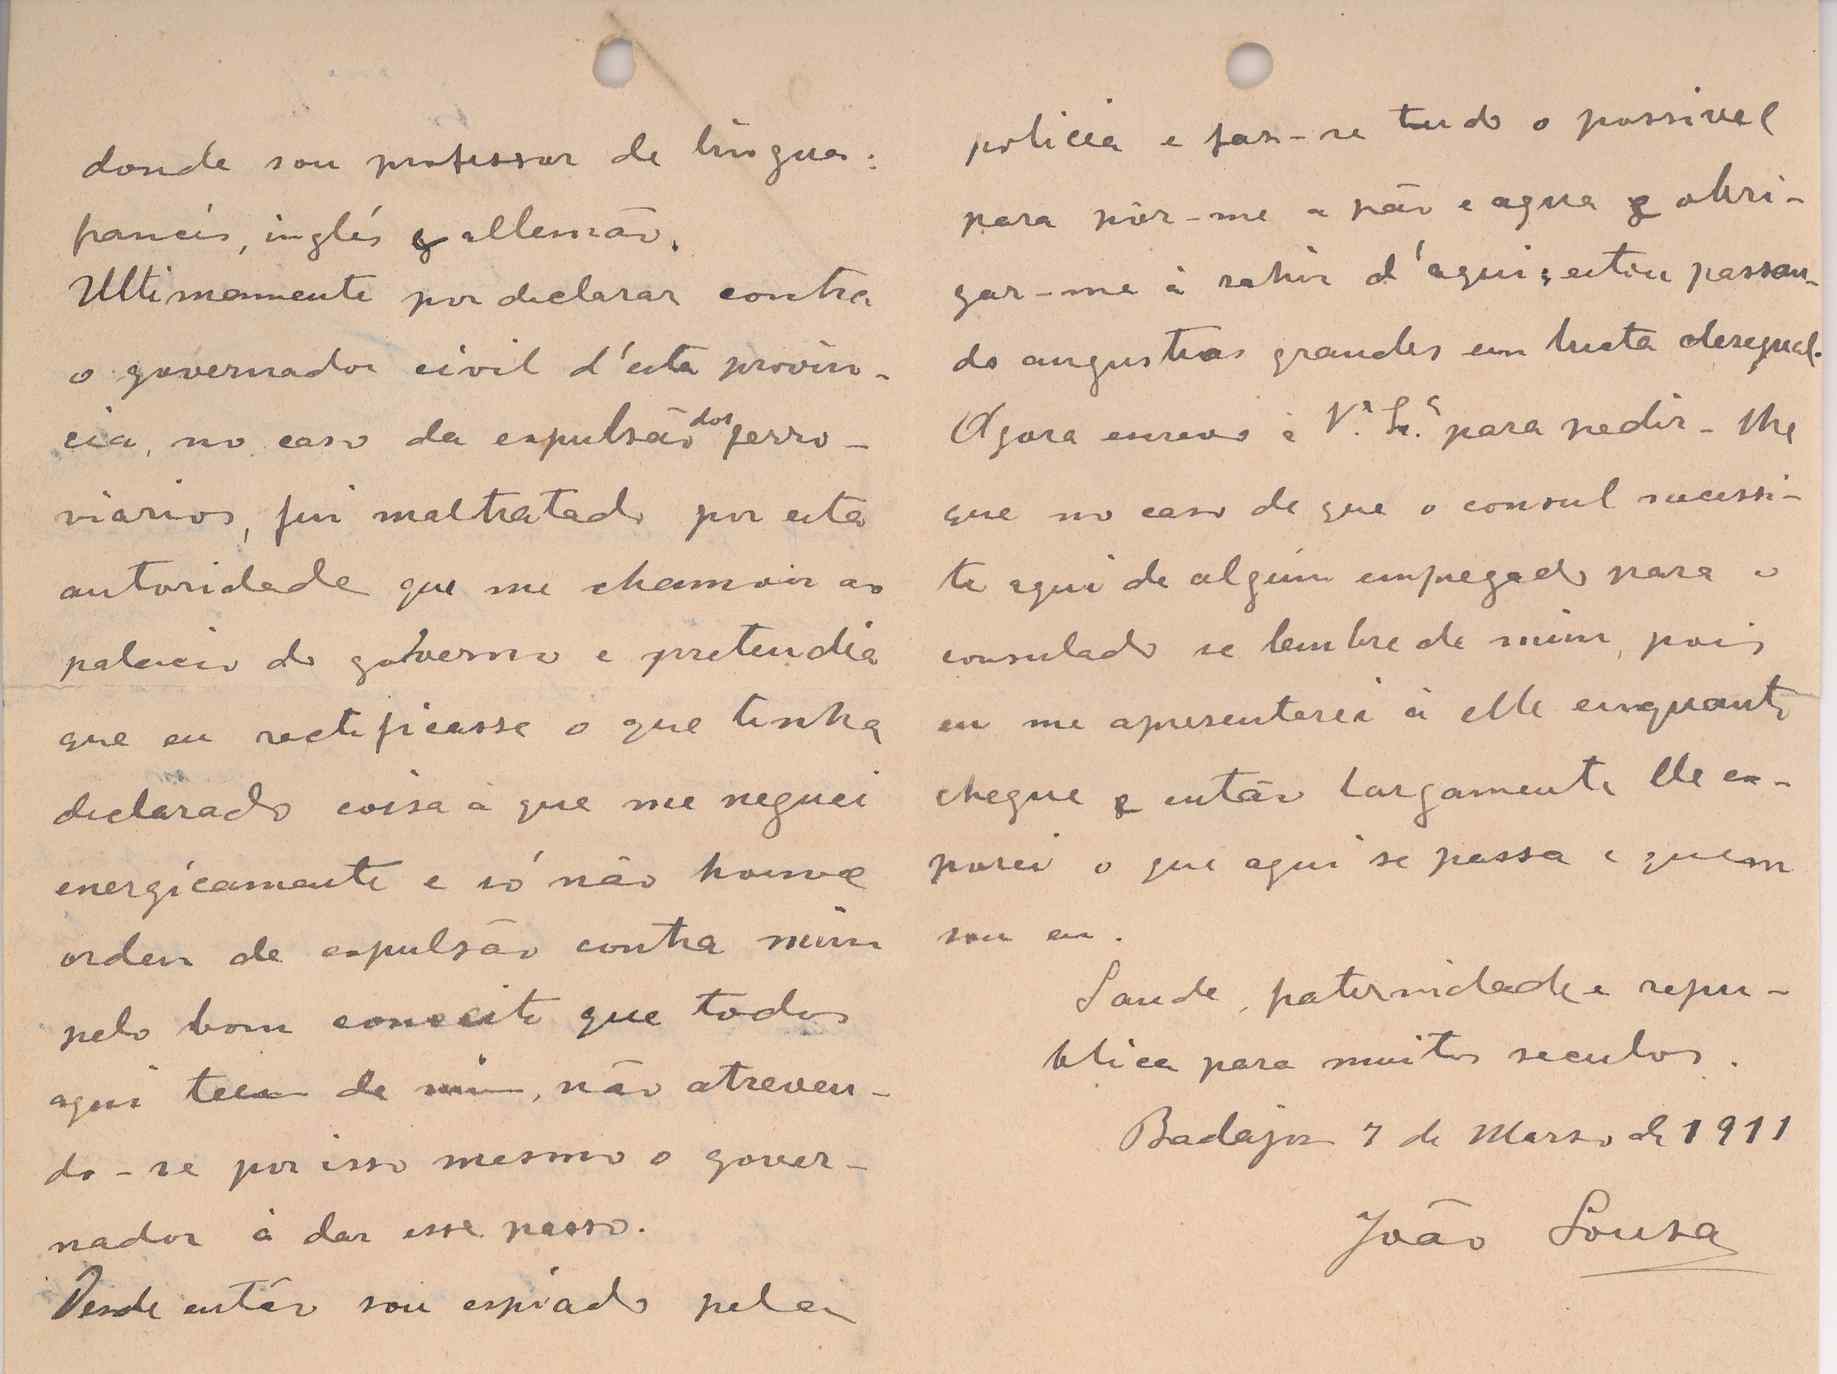 donde sou professor de linguas:
francês, inglés e allemão.
Ultimamente por declarar contra
o governador civil d'esta provin-
cia, no caso da expulsão dos ferro-
viarios, fui maltratado por esta
autoridade que me chamou ao
palacio do governo e pretendia
que eu rectificasse o que tinha
declarado coisa à que me neguei
energícamente e só não houve
orden de expulsão contra mim
pelo bom conceito que todos
aqui teem de mim, não atreven-
do-se por isso mesmo o gover-
nador à dar esse passo.
Desde então sou espiado pela
policia e faz-se tudo o possivel
para pôr-me a pão e agua e obri-
gar-me à sahir d'aqui; estou passan-
do angustias grandes em lucta desegual.
Agora escrevo à V.ª S.ª para pedir-lhe
que no caso de que o consul necessi-
te aqui de algúm empregado para o
consulado se lembre de mim, pois
eu me apresentarei à elle enquanto
chegue e então largamente lle ex-
porei o que aqui se passa e quem
sou eu.
Saude, fraternidade e repu-
blica para muitos seculos.
Badajoz 7 de Marzo de 1911
João Sousa